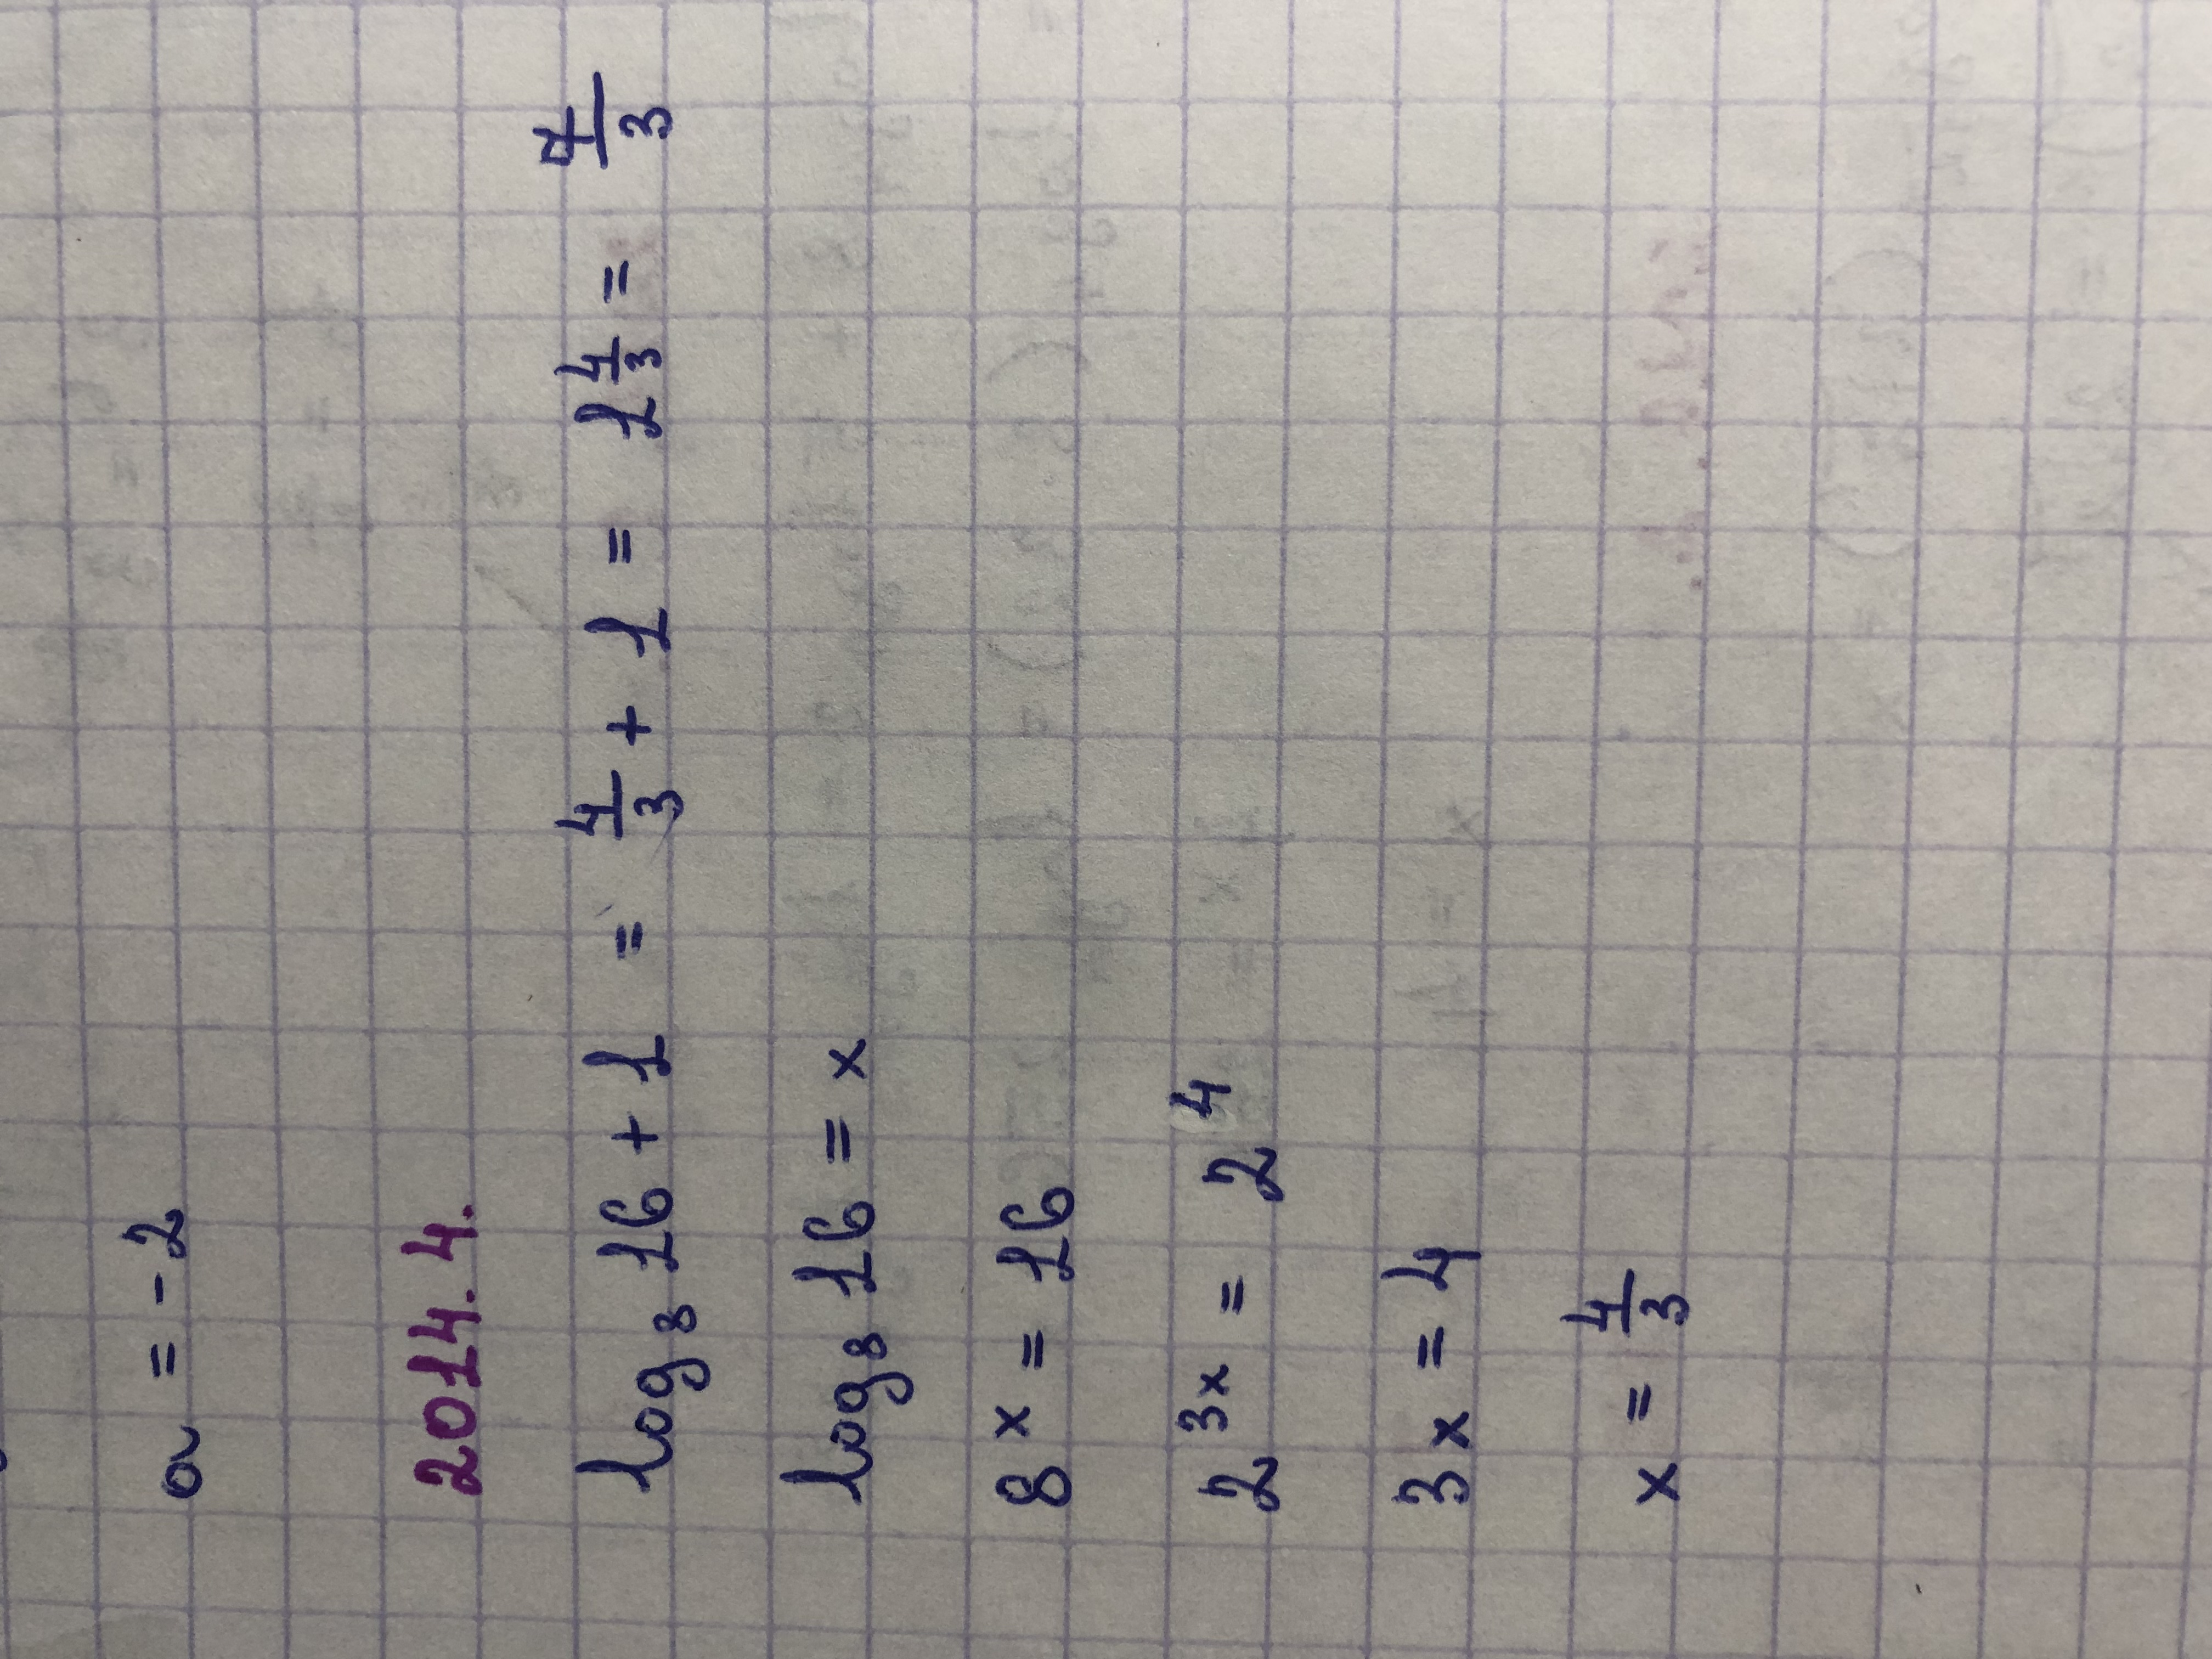 a = -2
2014. 4.
log₈ 16 + 1 = 4/3 + 1 = 1 4/3 = 7/3
log₈ 16 = x
8ˣ = 16
2³ˣ = 2⁴
3x = 4
x = 4/3